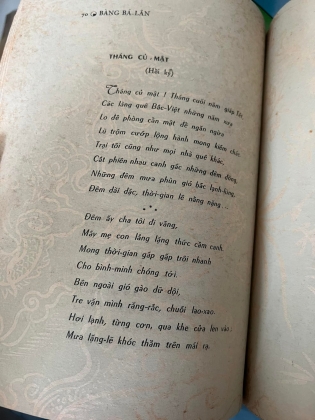 70 BÀNG BÁ-LÂN
THÁNG CỦ-MẬT
(Hồi ký)
Tháng củ mật ! Tháng cuối năm giáp Tết,
Các làng quê Bắc-Việt những năm xưa
Lo đề phòng cẩn mật để ngăn ngừa
Lũ trộm cướp lộng hành mong kiếm chác.
Trại tôi cũng như mọi nhà quê khác,
Cắt phiên nhau canh gác những đêm đông,
Những đêm mưa phùn gió bấc lạnh-lùng,
Đêm dài dặc, thời-gian lê nặng nặng...
***
Đêm ấy cha tôi đi vắng,
Mấy mẹ con lẳng lặng thức cầm canh,
Mong thời-gian gấp gấp trôi nhanh
Cho bình-minh chóng tới.
Bên ngoài gió gào dữ dội,
Tre vặn mình răng-rắc, chuối lao-xao.
Hơi lạnh, từng cơn, qua khe cửa lọt vào ;
Mưa lặng-lẽ khóc thầm trên mái rạ.